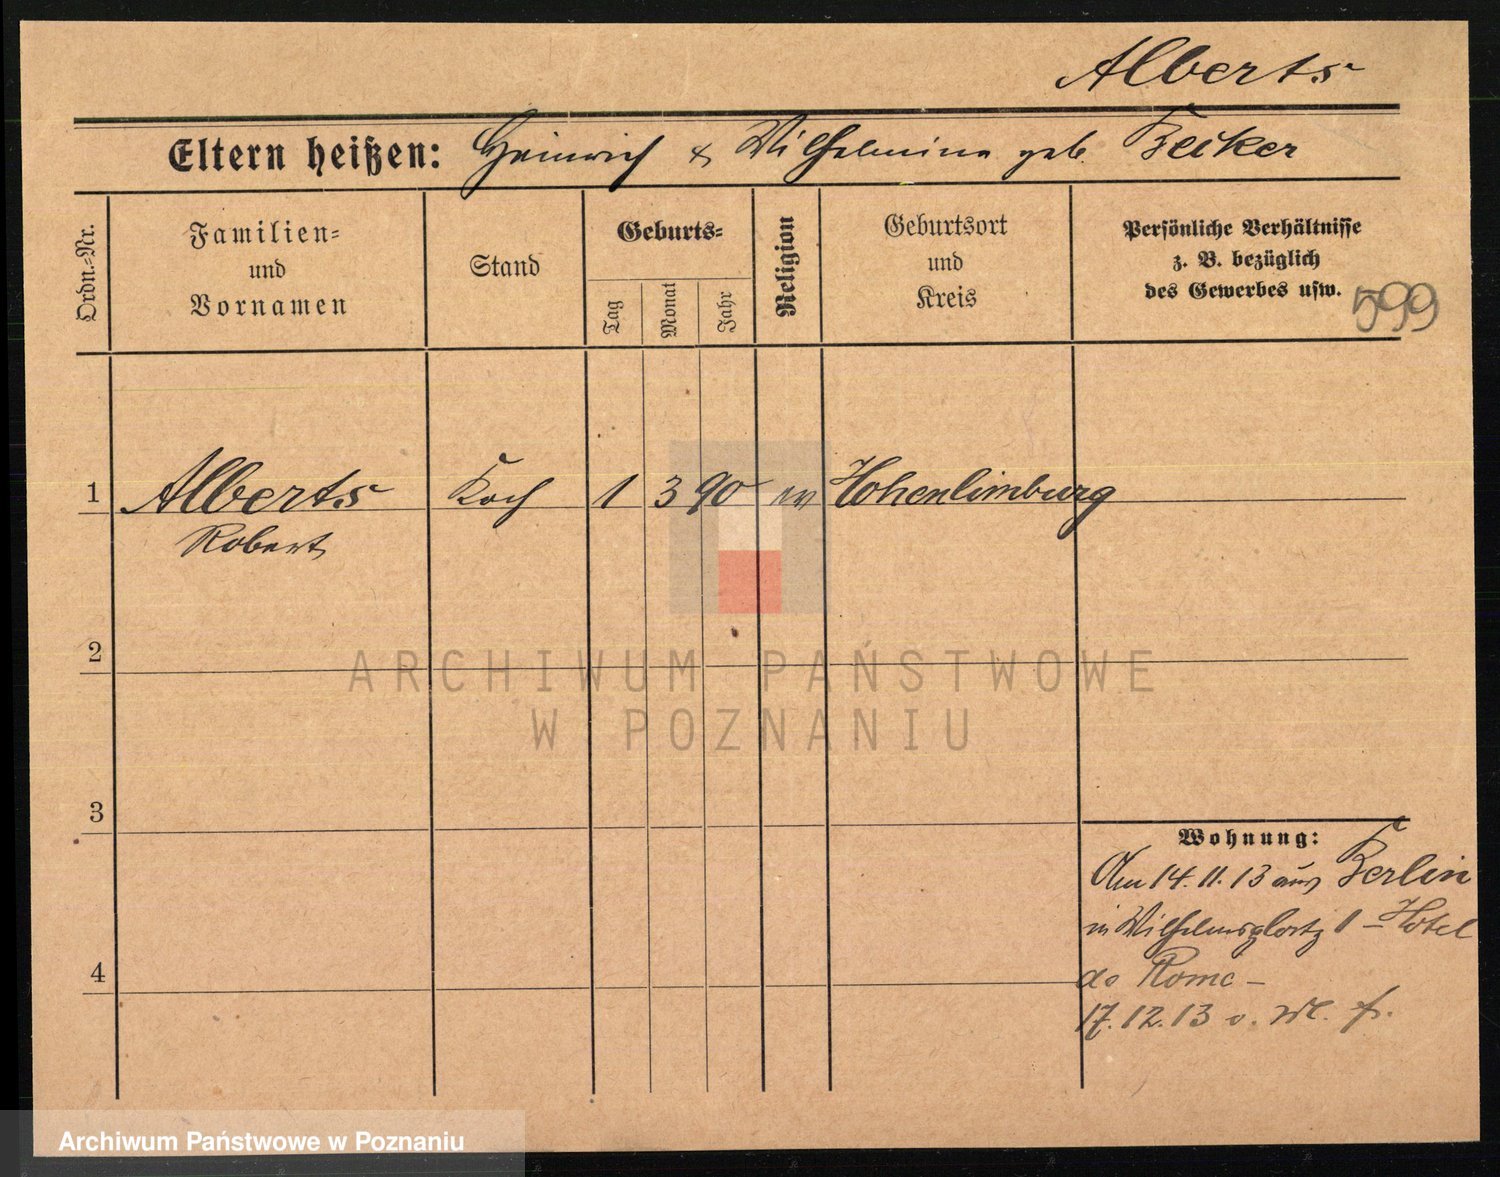 Alberts
Eltern heißen: Heinrich & Wilhelmine geb. Becker
Ordn.=Nr.
Familien=
und
Vornamen
Stand
Geburts=
Tag
Monat
Jahr
Religion
Geburtsort
und
Kreis
Persönliche Verhältnisse
z. B. bezüglich
des Gewerbes usw.
599
1 Alberts Koch 1 3 90 ev Hohenlimburg
Robert
2
ARCHIWUM PAŃSTWOWE
W POZNANIU
3
Wohnung:
Am 14.11.13 aus Berlin
in Wilhelmsplatz 1 – Hotel
4
de Rome –
17.12.13 v.
Archiwum Państwowe w Poznaniu